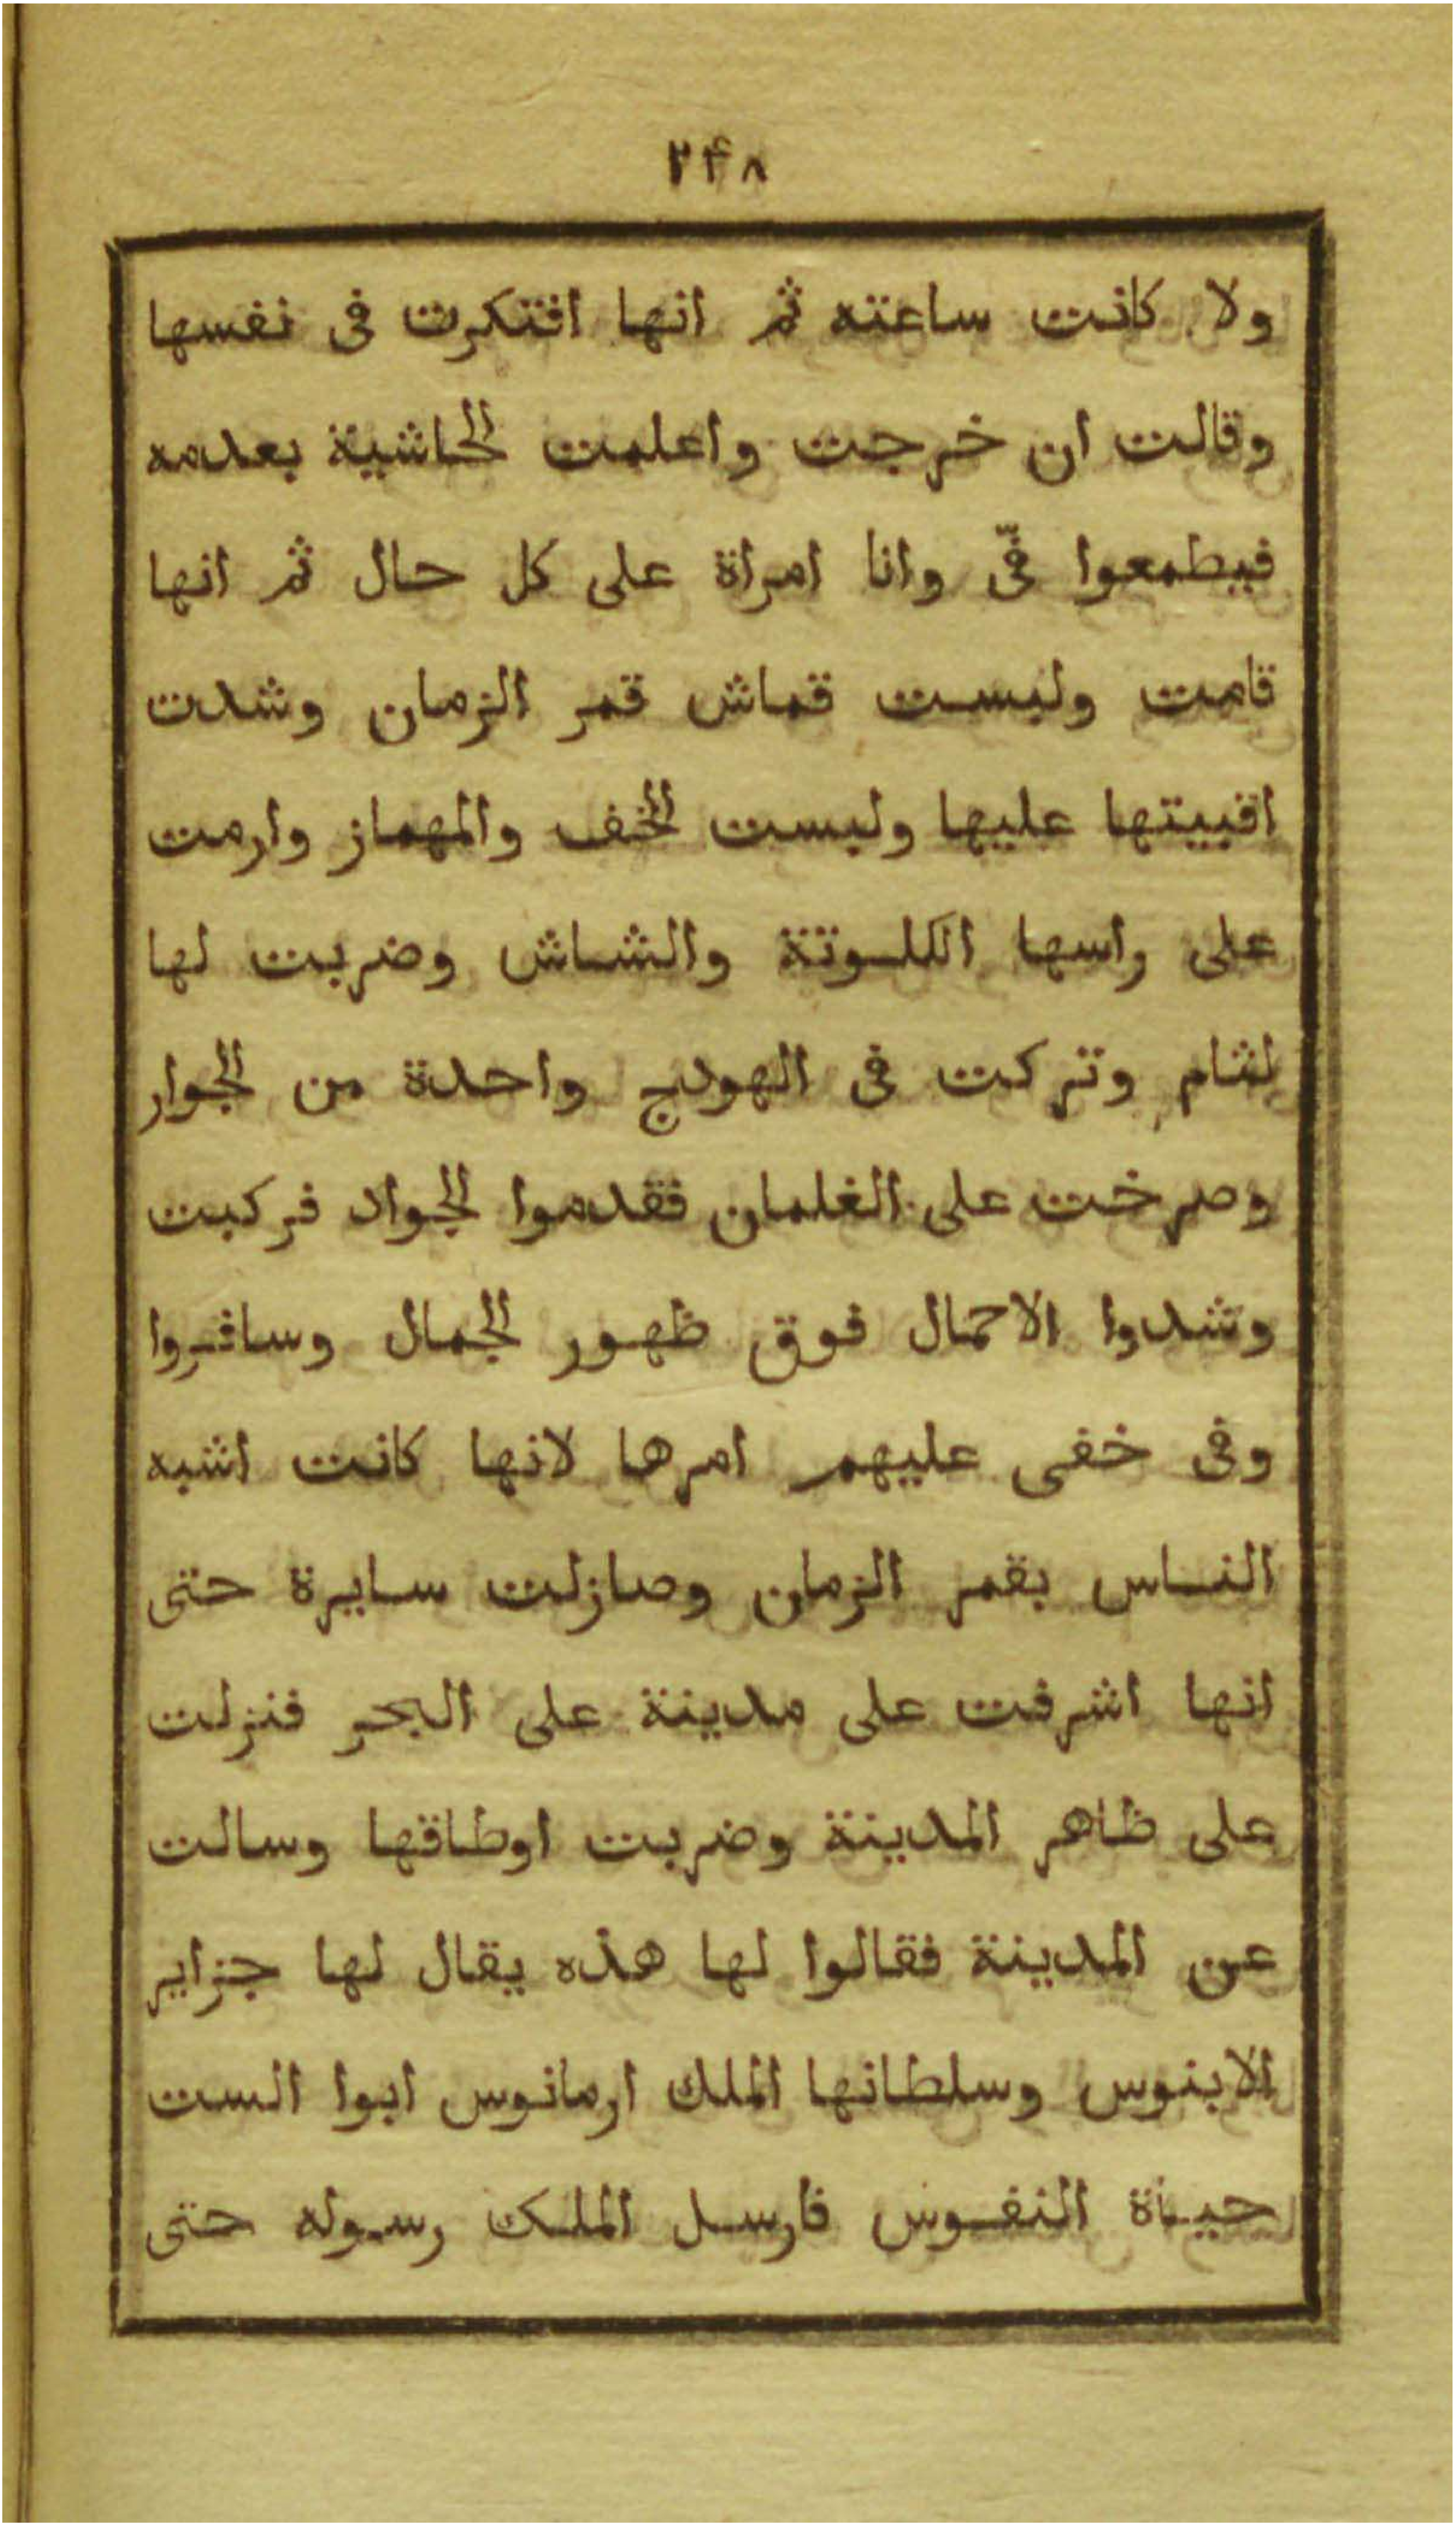 ٢۴٨
ولا كانت ساعته ثم انها افتكرت فى نفسها
وقالت ان خرجت واعلمت الحاشية بعدمه
فيطمعوا فىّ وانا امراة على كل حال ثم انها
قامت ولبست قماش قمر الزمان وشدت
اقبيتها عليها ولبست الخف والمهماز وارمت
على راسها الكلوتة والشاش وضربت لها
لثام وتركت فى الهودج واحدة من الجوار
وصرخت على الغلمان فقدموا الجواد فركبت
وشدوا الاحمال فوق ظهور الجمال وسافروا
وفى خفى عليهم امرها لانها كانت اشبه
الناس بقمر الزمان وصازلت سايرة حتى
انها اشرفت على مدينة على البحر فنزلت
على ظاهر المدينة وضربت اوطاقها وسالت
عن المدينة فقالوا لها هذه يقال لها جزاير
الابنوس وسلطانها الملك ارمانوس ابوا الست
حياة النفوس فارسل الملك رسوله حتى